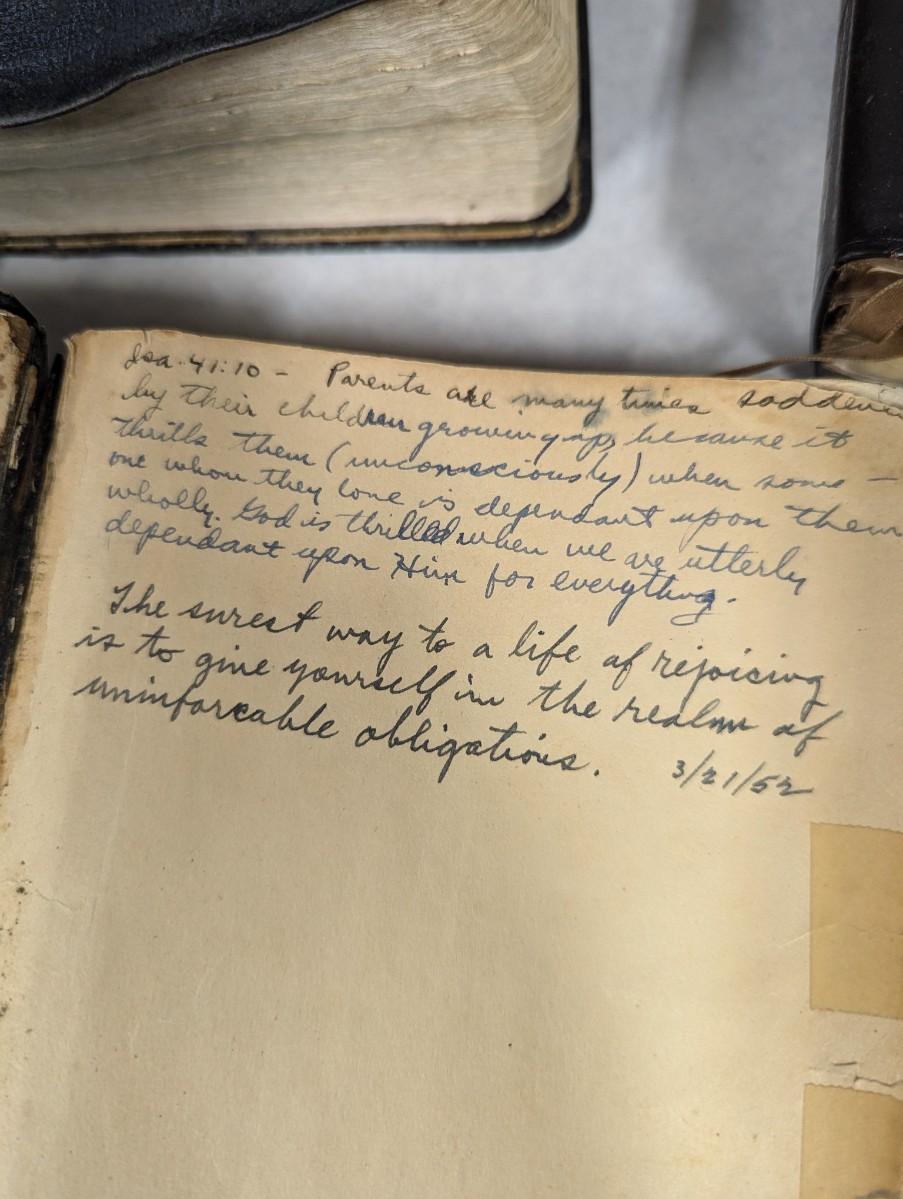 Isa. 41:10 - Parents are many times saddened
by their children growing up, because it
thrills them (unconsciously) when some -
one whom they love is dependant upon them
wholly. God is thrilled when we are utterly
dependant upon Him for everything.
The surest way to a life of rejoicing
is to give yourself in the realm of
uninforcable obligations. 3/21/52